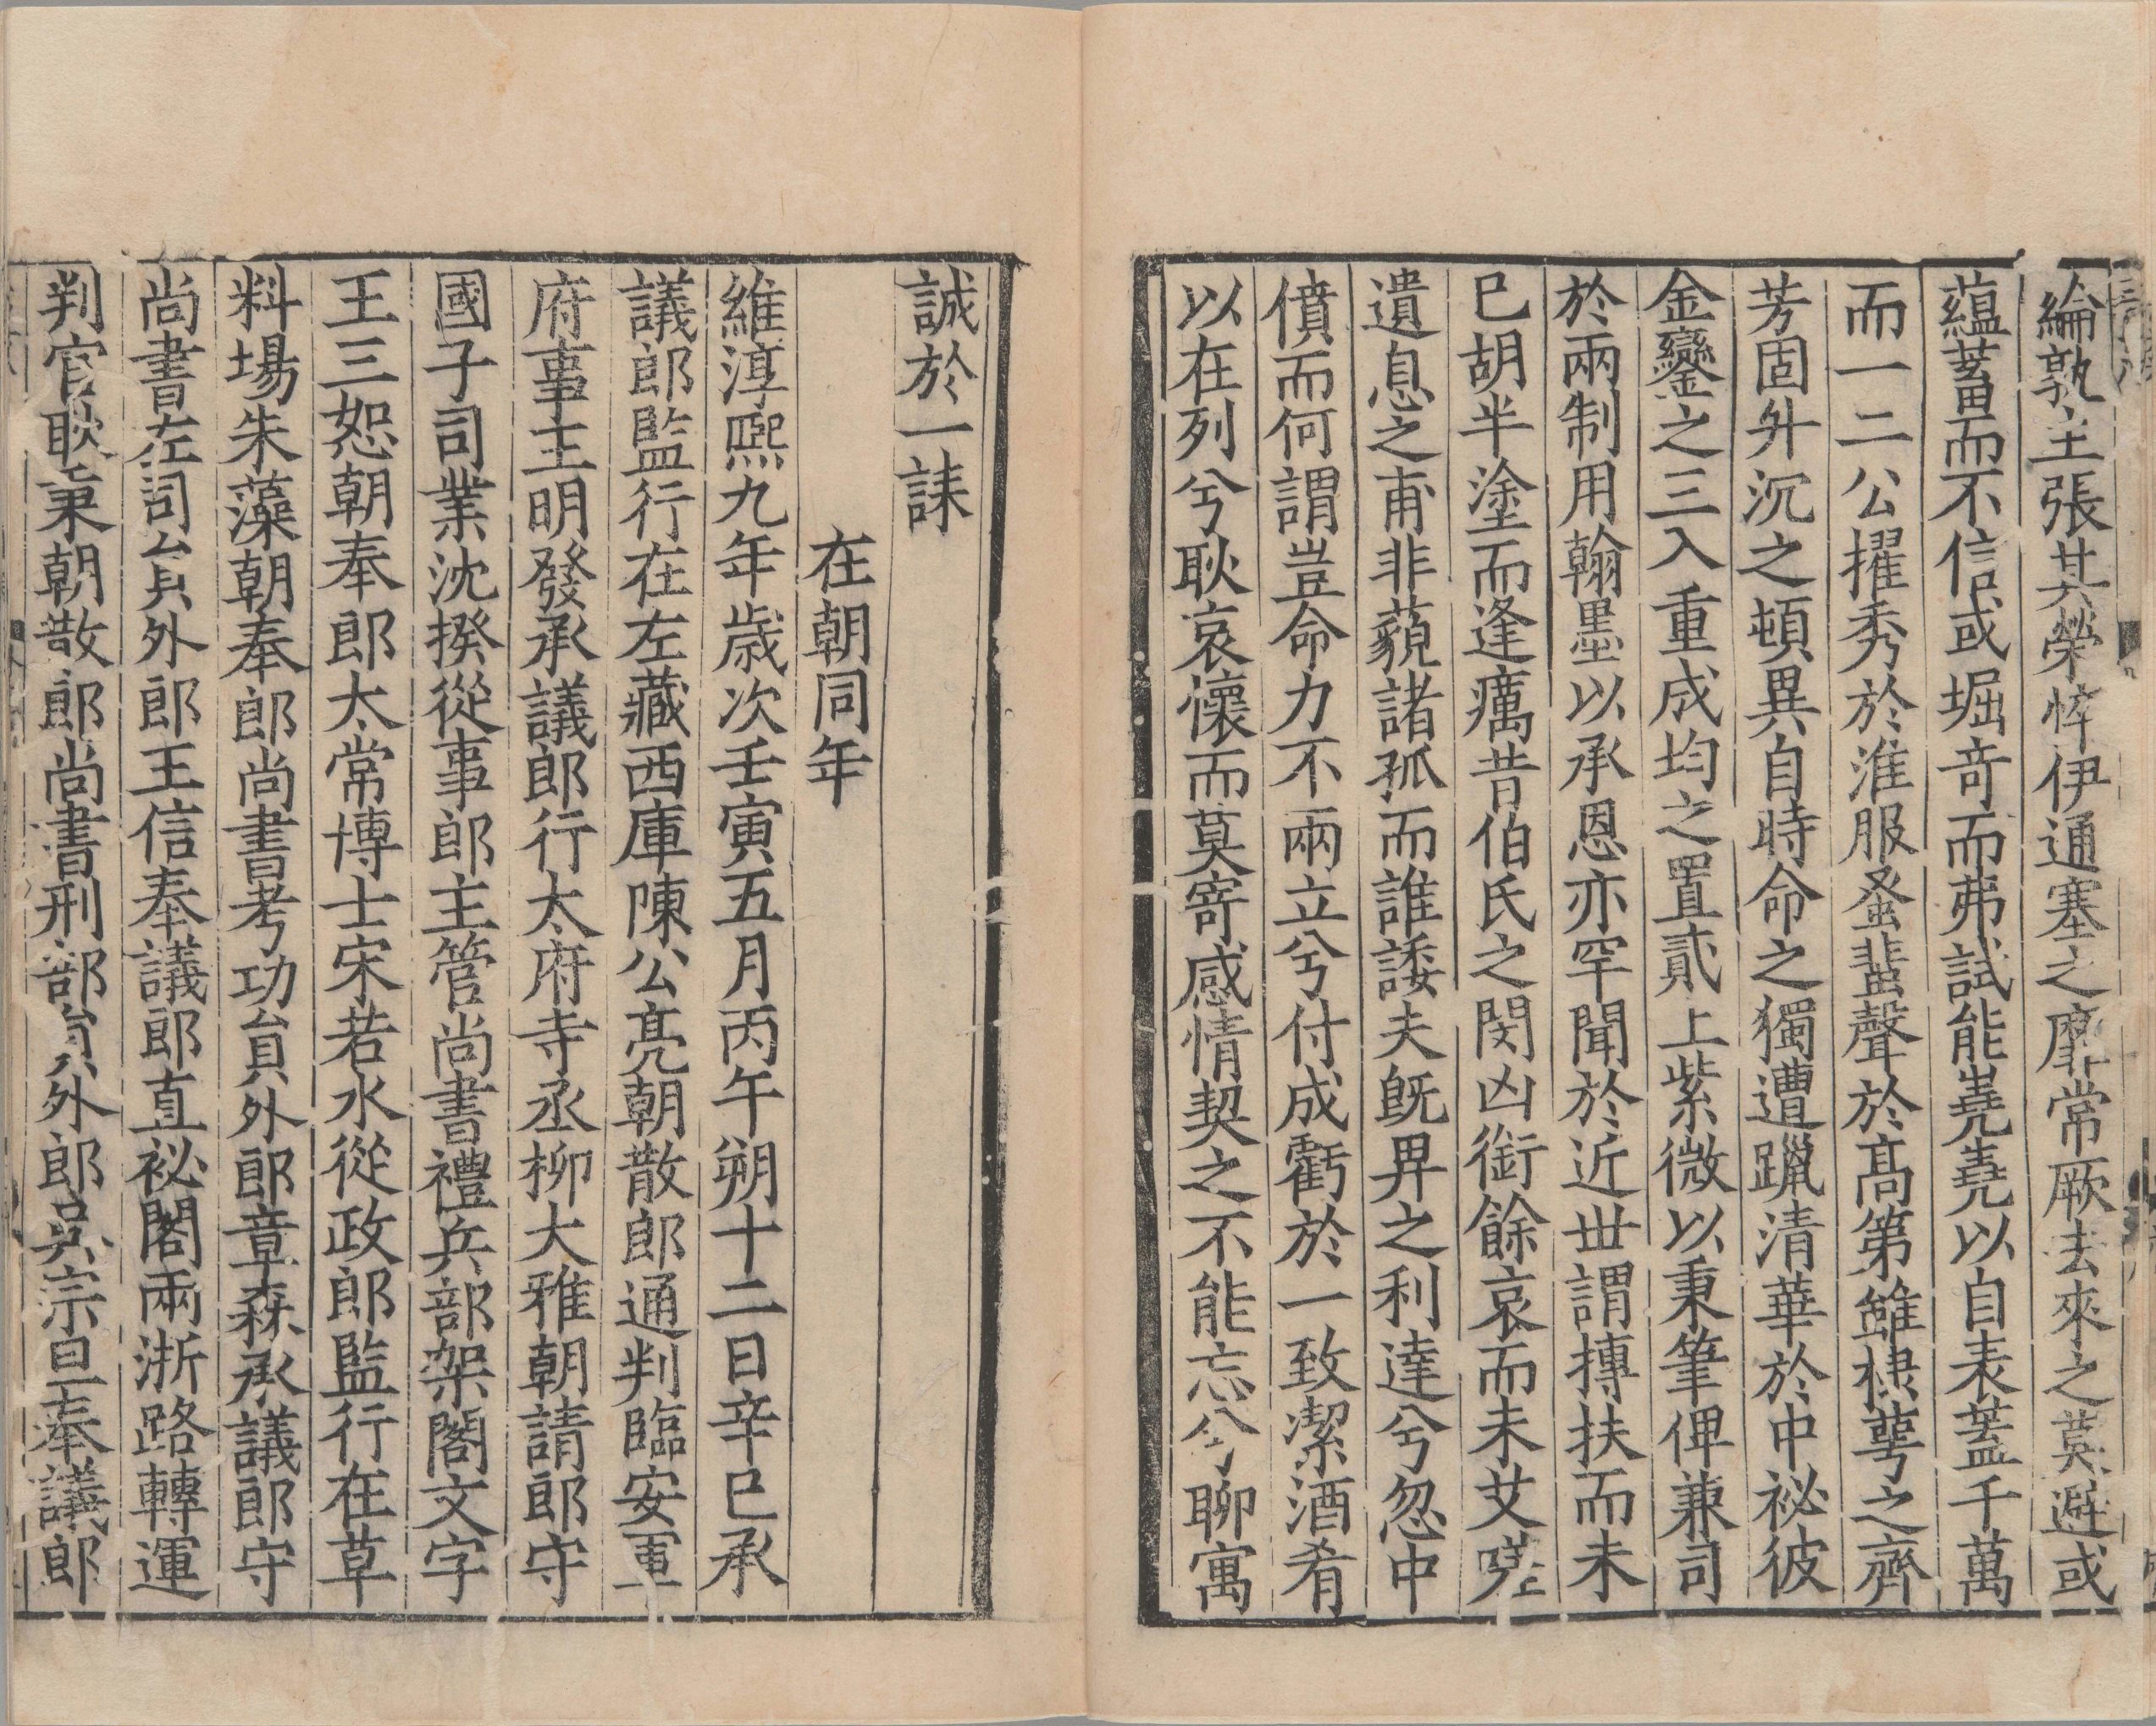 綸孰主張其榮悴伊通塞之靡常厥去來之莫避或
蘊蓄而不信或堀竒而弗試能嶤嶤以自表蓋千萬
而一二公擢秀於淮服蚤蜚聲於髙第雖棣萼之齊
芳固升沉之頓異自時命之獨遭躐清華於中祕彼
金鑾之三入重成均之置貳上紫微以秉筆俾兼司
於兩制用翰墨以承恩亦罕聞於近世謂摶扶而未
已胡半塗而逢癘昔伯氏之閔凶銜餘哀而未艾嗟
遺息之甫非藐諸孤而誰諉夫既畀之利達兮忽中
僨而何謂豈命力不兩立兮付成虧於一致潔酒肴
以在列兮耿哀懷而莫寄感情契之不能忘兮聊寓
誠於一誄
在朝同年
維淳熙九年歲次壬寅五月丙午朔十二日辛巳承
議郎監行在左藏西庫陳公亮朝散郎通判臨安軍
府事王明發承議郎行太府寺丞柳大雅朝請郎守
國子司業沈揆從事郎主管尚書禮兵部架閣文字
王三恕朝奉郎太常博士宋若水從政郎監行在草
料場朱藻朝奉郎尚書考功貟外郎章森承議郎守
尚書左司貟外郎王信奉議郎直祕閣兩浙路轉運
判官耿秉朝散郎尚書刑部貟外郎吳宗旦奉議郎